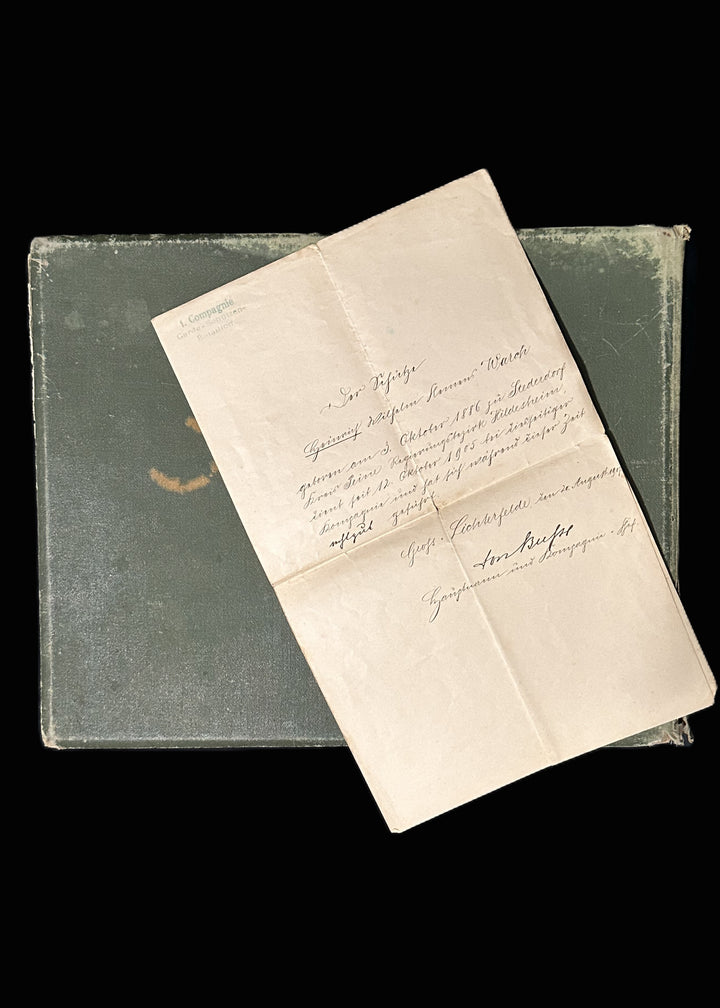 1. Compagnie
Garde-Schützen-
Bataillon
Der Schütze
Heinrich Wilhelm Clemens Warch
geboren am 3. Oktober 1886 zu
Kreis Peine Regierungsbezirk Hildesheim,
dient seit 12. Oktober 1905 bei diesseitiger
Kompagnie und hat sich während dieser Zeit
geführt.
Groß-Lichterfelde, den 20. August
Hauptmann und Kompagnie-Chef